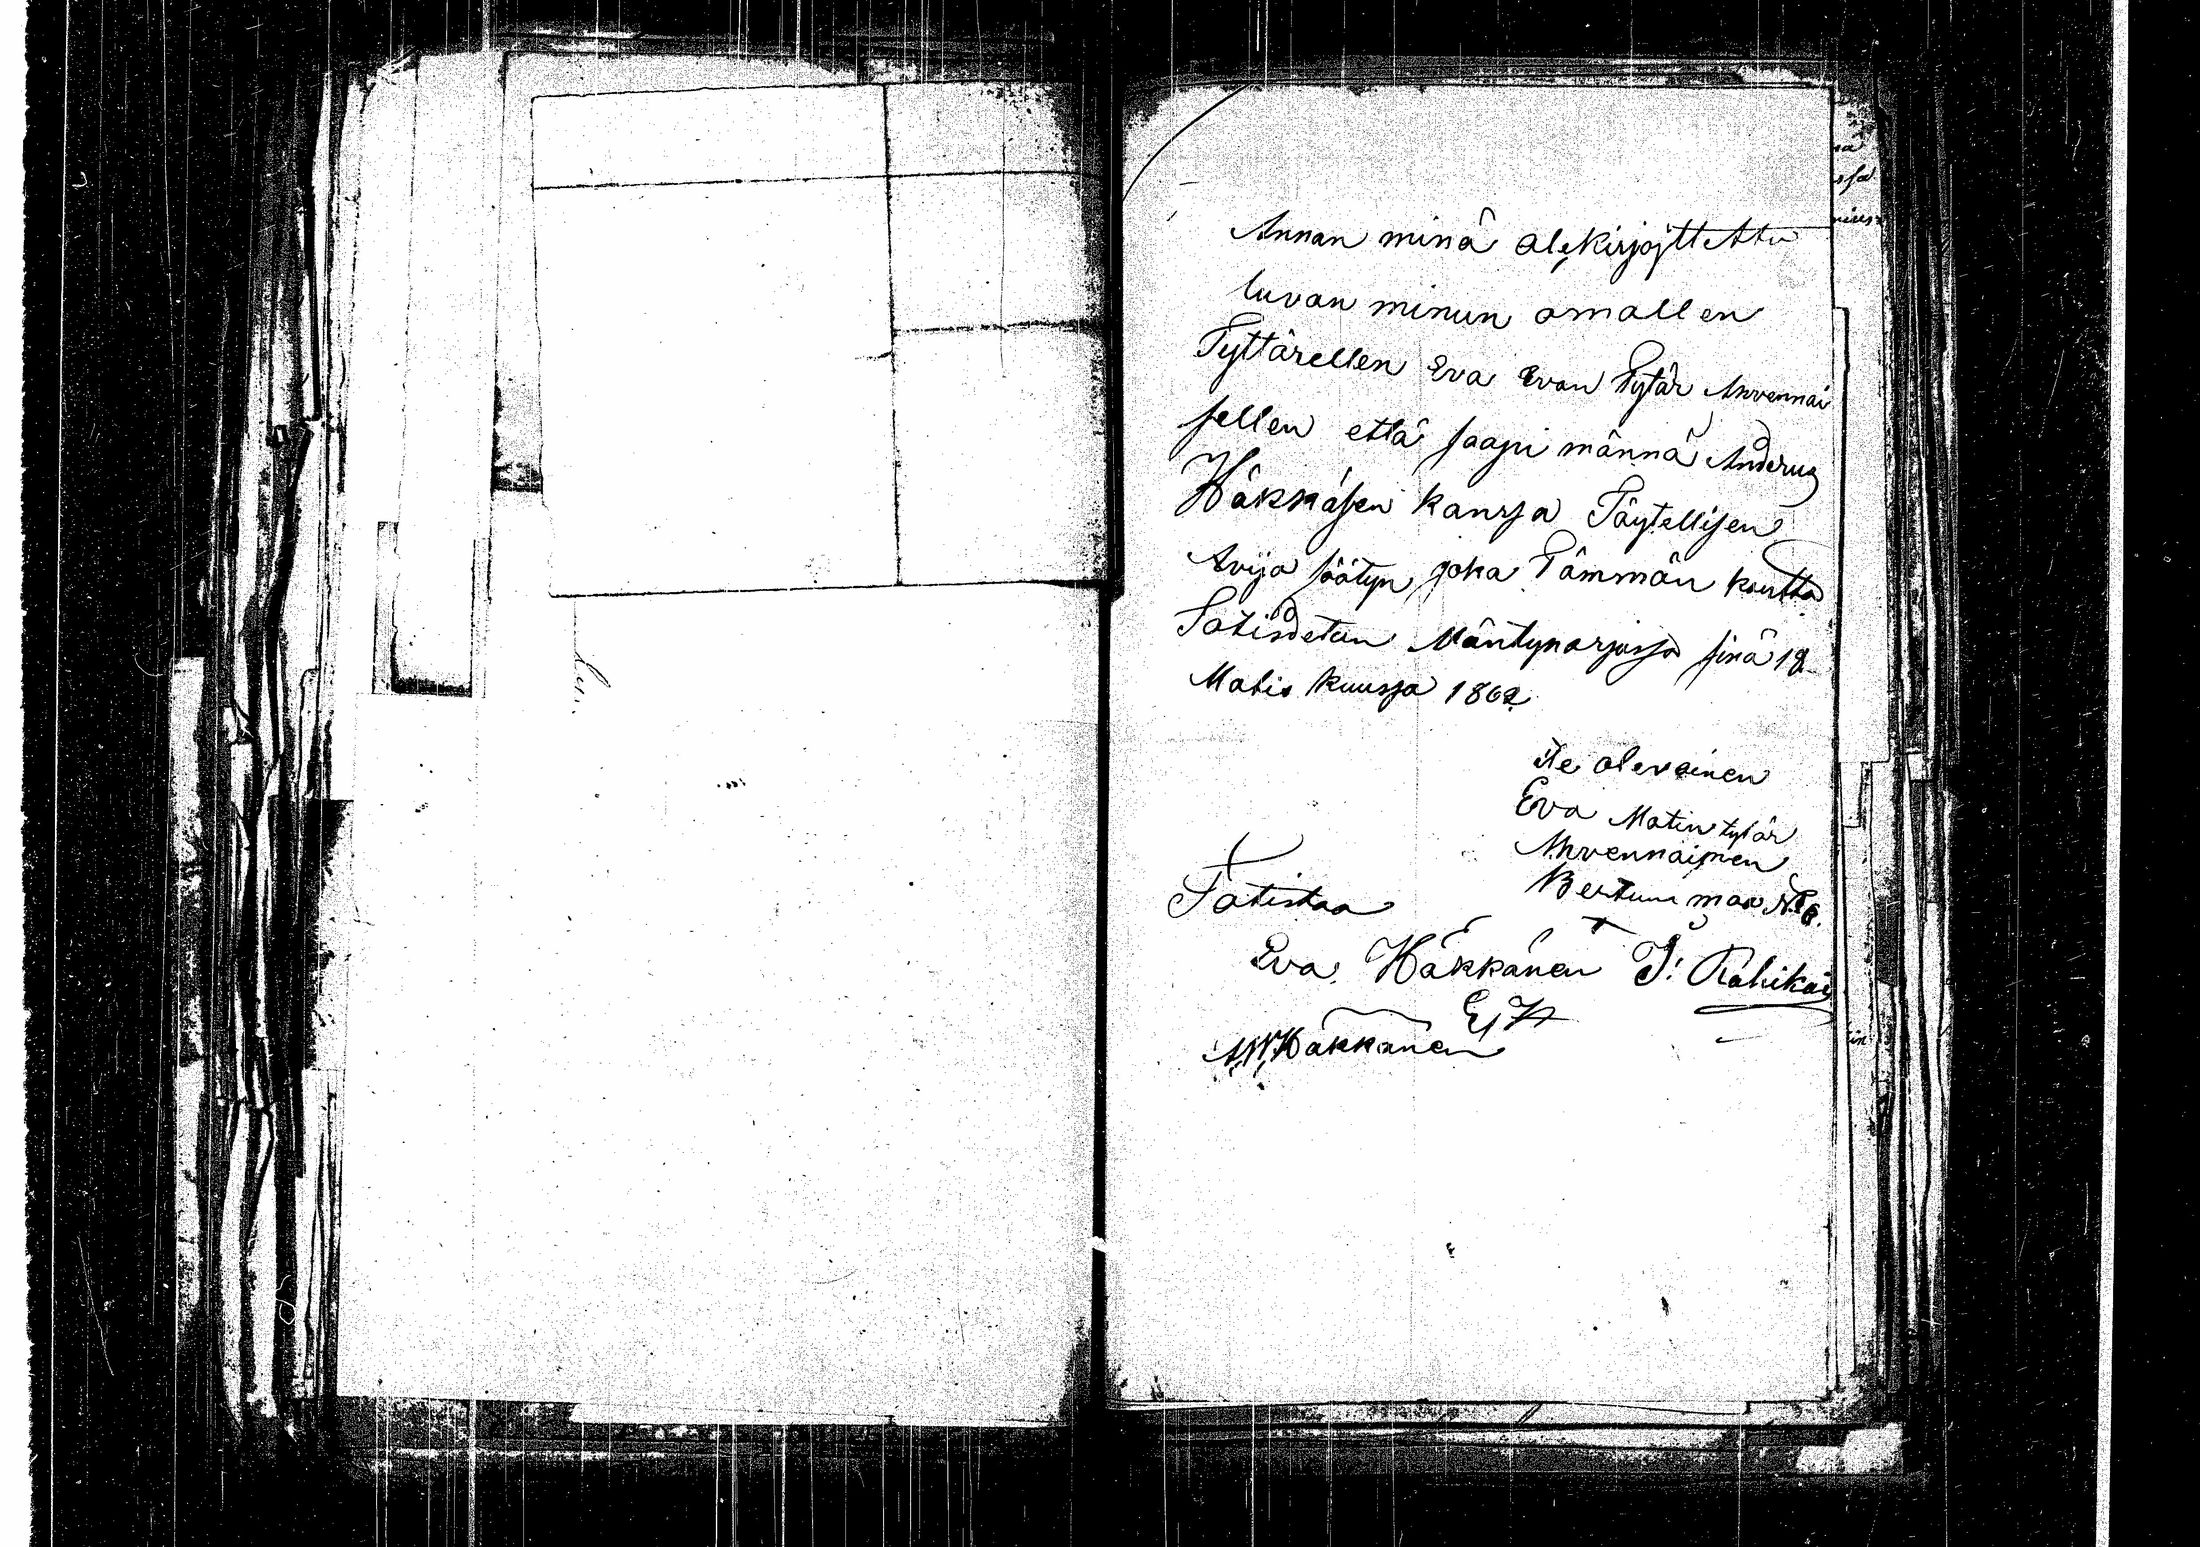 Annan minä alekirjojttettu
luvan minun omallen
Tyttärellen Eva Evan Tytär Ahvennai
sellen että saapi männä Anderus
Häkkäsen kanssa Täytellisen
Avija säätyn joka Tämmän kautta
Totisdetan Mäntynarjussa sinä 18
Matis kuussa 1862
Ite olevainen
Eva Matin tytär
Ahvennainen
Totistaa
Eva Häkkänen J: Rahikai
E H
A W Häkkänen